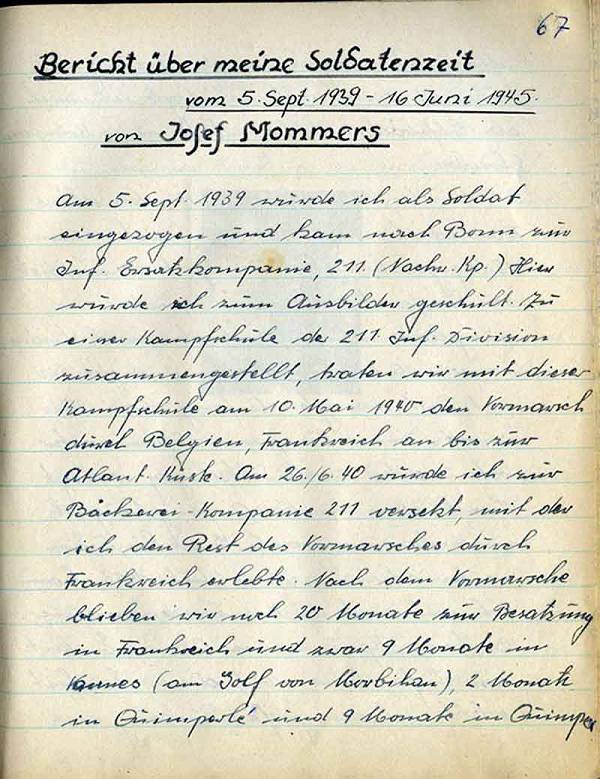 67
Bericht über meine Soldatenzeit
vom 5. Sept. 1939 - 16 Juni 1945.
von Josef Mommers
Am 5. Sept. 1939 wurde ich als Soldat
eingezogen und kam nach Bonn zur
Inf. Ersatzkompanie, 211. (Nachr. Kp.) Hier
wurde ich zum Ausbilder geschult. Zu
einer Kampfschule der 211. Inf. Division
zusammengestellt, traten wir mit dieser
Kampfschule am 10. Mai 1940 den Vormarsch
durch Belgien, Frankreich an bis zur
Atlant. Küste. Am 26./6. 40 wurde ich zur
Bäckerei-Kompanie 211 versetzt, mit der
ich den Rest des Vormarsches durch
Frankreich erlebte. Nach dem Vormarsche
blieben wir noch 20 Monate zur Besatzung
in Frankreich und zwar 9 Monate in
Vannes (am Golf von Morbihan), 2 Monate
in Quimperlé und 9 Monate in Quimper